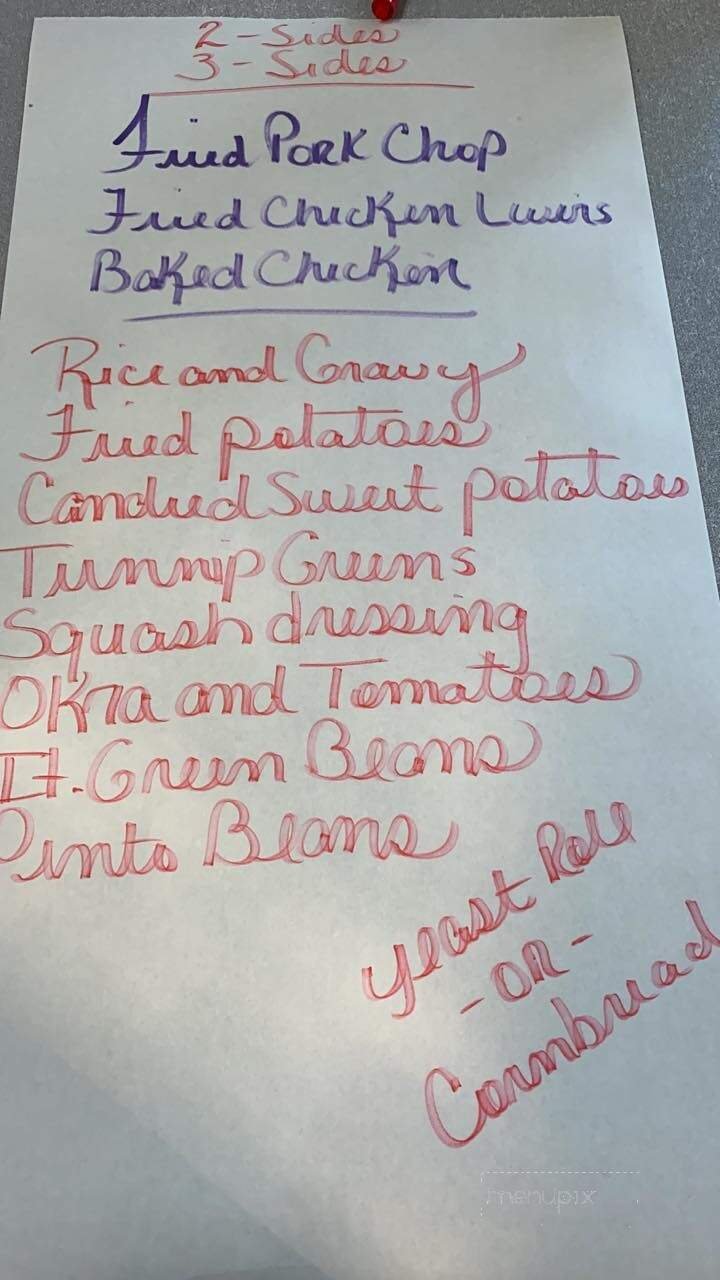 2-Sides
3-Sides
Fried Pork Chop
Fried Chicken Livers
Baked Chicken
Rice and Gravy
Fried potatoes
Candied Sweet potatoes
Turnip Greens
Squash dressing
Okra and Tomatoes
It. Green Beans
Pinto Beans
yeast Roll
-OR-
Cornbread
menupix